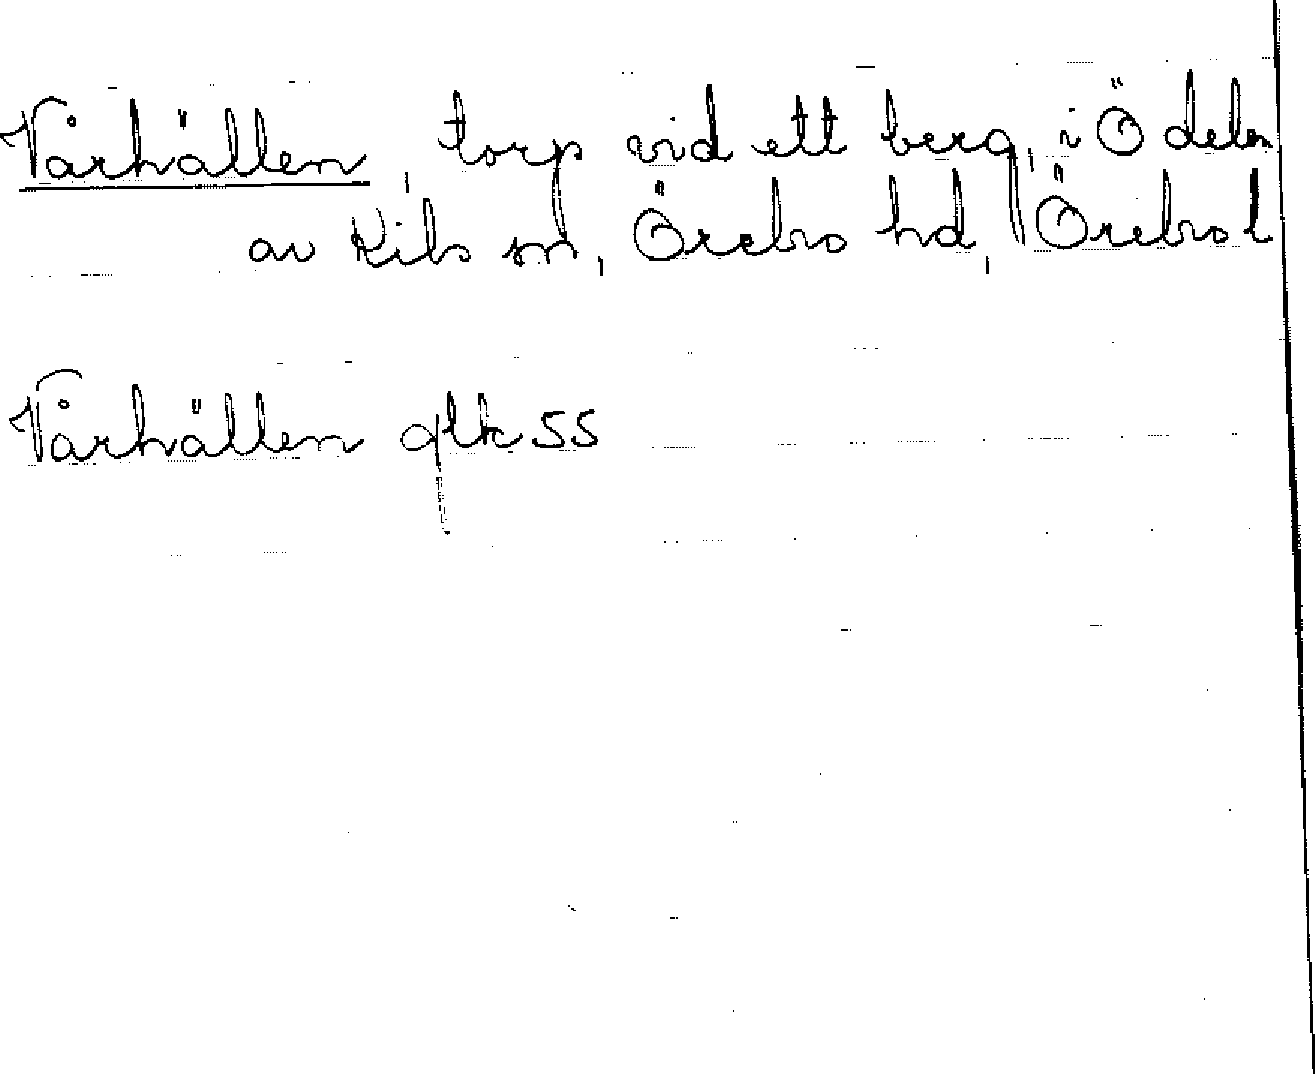 Vårhällen, torp vid ett berg, i Ö delen
av Kils sn, Örebro hd, Örebro l
Vårhällen glk 55